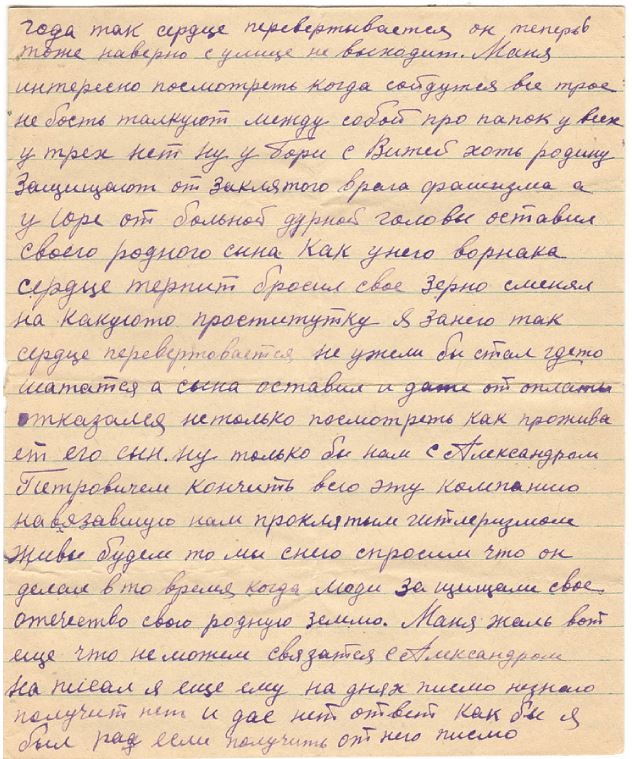 года так сердце перевертывается он теперь
тоже наверно с улице не выходит. Маня
интересно посмотреть когда сойдутся все трое
не бость талкуют между собой про папок у всех
у трех нет ну у Бори с Витей хоть родину
защищают от заклятого врага фашизма а
у Юре от больной дурной головы оставил
своего родного сына как унего ворнака
сердце терпит бросил свое зерно сменял
на какуюто проститутку я занего так
сердце перевертовается не ужели бы стал гдето
шататся а сына оставил и даже от оплаты
отказался нетолько посмотреть как прожива
ет его сын. ну только бы нам с Александром
Петровичем кончить всю эту компанию
навязавшую нам проклятым гитлеризмом
живы будем то мы снего спросим что он
делал в то время когда люди защищали свое
отечество свою родную землю. Маня жаль вот
еще что не можем связатся с Александром
на писал я еще ему на днях писмо незнаю
получит нет и дас нет ответ как бы я
был рад если получить от него писмо